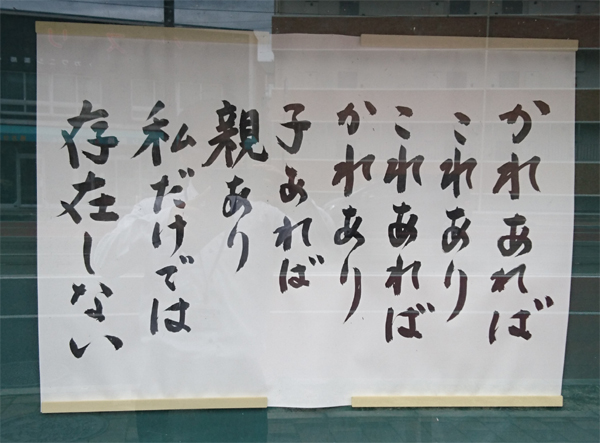 かれあれば
これあり
これあれば
かれあり
子あれば
親あり
私だけでは
存在しない